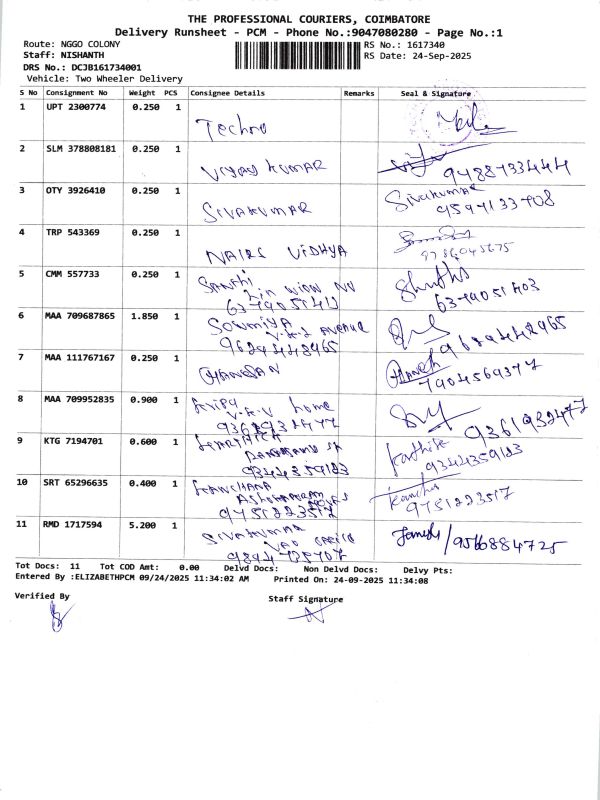 THE PROFESSIONAL COURIERS, COIMBATORE
Delivery Runsheet - PCM - Phone No.:9047080280 - Page No.:1
Route: NGGO COLONY
RS No.: 1617340
Staff: NISHANTH
RS Date: 24-Sep-2025
DRS No.: DCJB161734001
Vehicle: Two Wheeler Delivery
S No Consignment No Weight PCS Consignee Details Remarks Seal & Signature
1 UPT 2300774 0.250 1
Techno
2 SLM 378808181 0.250 1
Vijay kumar 9488733444
3 OTY 3926410 0.250 1
SIVAKUMAR Sivakumar
9597133708
4 TRP 543369 0.250 1
NAIRS VIDHYA
5 CMM 557733 0.250 1
Santhi
6379051403
6 MAA 709687865 1.850 1
Sowmiya
V.K.L AVENUE
9629442965
7 MAA 111767167 0.250 1
7904569377
8 MAA 709952835 0.900 1
V.K.V home
9361932477
9 KTG 7194701 0.600 1
9344359123
10 SRT 65296635 0.400 1
9751223517
11 RMD 1717594 5.200 1
Sivakumar
VAO office
9566884725
Tot Docs: 11 Tot COD Amt: 0.00 Delvd Docs: Non Delvd Docs: Delvy Pts:
Entered By :ELIZABETHPCM 09/24/2025 11:34:02 AM Printed On: 24-09-2025 11:34:08
Verified By
Staff Signature